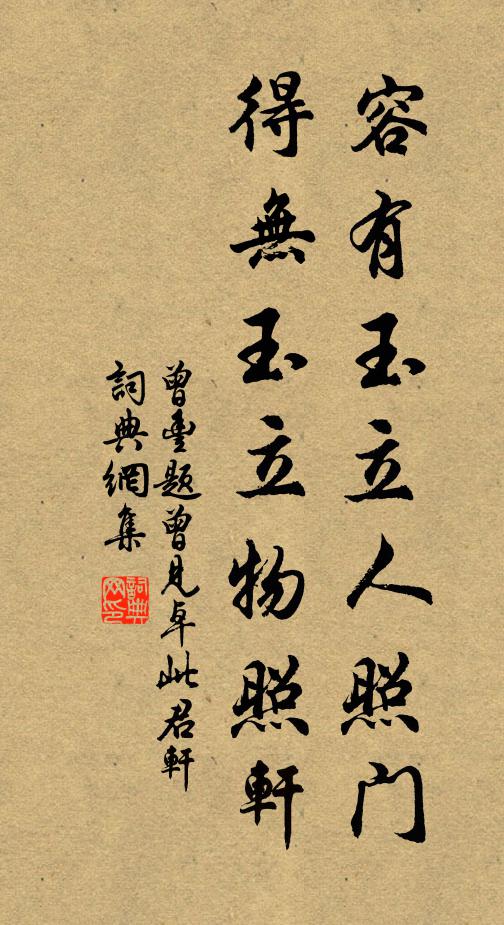 容有玉立人照门
得無玉立物照軒
曾豊题曾見卓此君軒
詞典網集
詞典网印